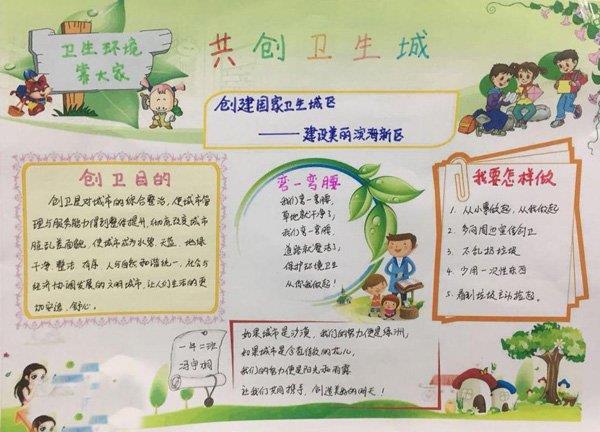 卫生环境
靠大家
共创卫生城
创建国家卫生城区
——建设美丽滨海新区
创卫目的
创卫是对城市的综合整治,使城市管
理与服务能力得到整体提升,彻底改变城市
脏乱差面貌,使城市成为水碧、天蓝、地绿
干净、整洁、有序、人与自然和谐统一,社会与
经济协调发展的文明城市,让人们生活的更
加安逸、舒心。
弯一弯腰
我们弯一弯腰,
草地就干净了,
我们弯一弯腰,
道路就整洁了,
保护环境卫生
从你我做起!
我要怎样做
1. 从小事做起,从我做起
2. 多向周边宣传创卫
3. 不乱扔垃圾
4. 少用一次性东西
5. 看到垃圾主动捡起。
一年二班
如果城市是沙漠,我们的努力便是绿洲,
如果城市是含苞待放的花儿,
我们的努力便是阳光和雨露
让我们共同携手,创造美好的明天!